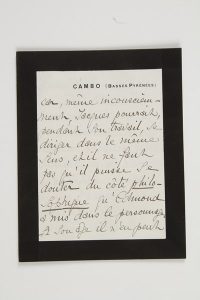 CAMBO (BASSES PYRÉNÉES)
car, même inconsciem-
ment, Jacques pourrait,
pendant son travail, se
diriger dans le même
sens, et il ne faut
pas qu'il puisse se
douter du côté philo-
sophique qu'Edmond
a mis dans le personnage
A son âge il n'en peut